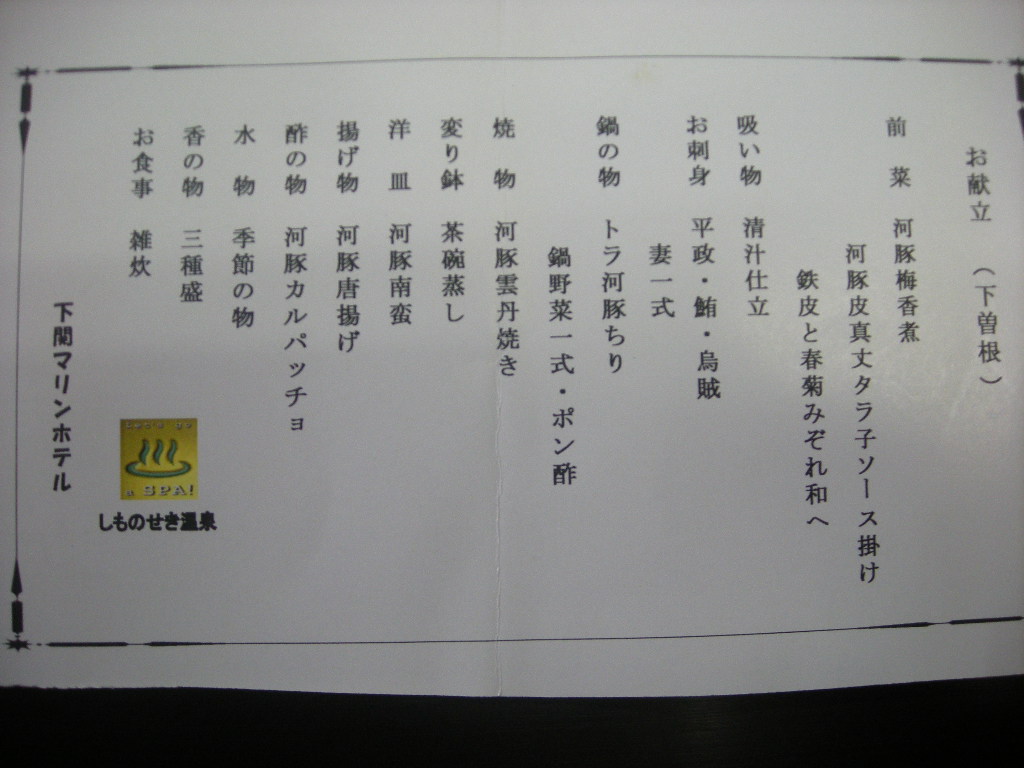 お献立　（下曽根）
前　菜　河豚梅香煮
河豚皮真丈タラ子ソース掛け
鉄皮と春菊みぞれ和へ
吸い物　清汁仕立
お刺身　平政・鮪・烏賊
妻一式
鍋の物　トラ河豚ちり
鍋野菜一式・ポン酢
焼　物　河豚雲丹焼き
変り鉢　茶碗蒸し
洋　皿　河豚南蛮
揚げ物　河豚唐揚げ
酢の物　河豚カルパッチョ
水　物　季節の物
香の物　三種盛
お食事　雑炊
Let's go
a SPA!
しものせき温泉
下関マリンホテル